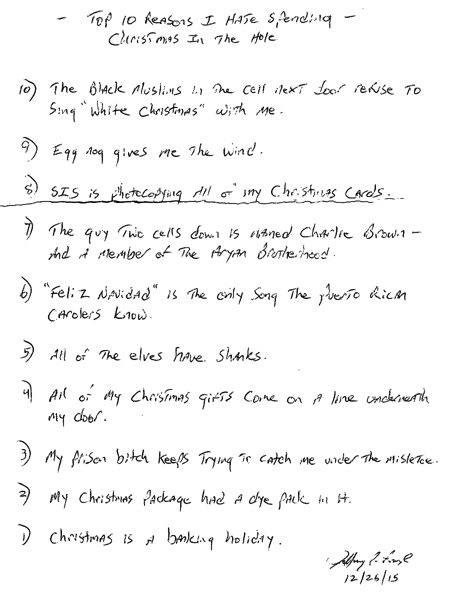 - Top 10 Reasons I Hate Spending -
Christmas In The Hole
10) The Black Muslims in the cell next door refuse to
sing "White Christmas" with me.
9) Egg nog gives me the wind.
8) SIS is photocopying all of my Christmas cards.
7) The guy two cells down is named Charlie Brown -
and a member of the Aryan Brotherhood.
6) "Feliz Navidad" is the only song the Puerto Rican
carolers know.
5) All of the elves have shanks.
4) All of my Christmas gifts come on a line underneath
my door.
3) My prison bitch keeps trying to catch me under the mistletoe.
2) My Christmas package had a dye pack in it.
1) Christmas is a banking holiday.
12/25/15